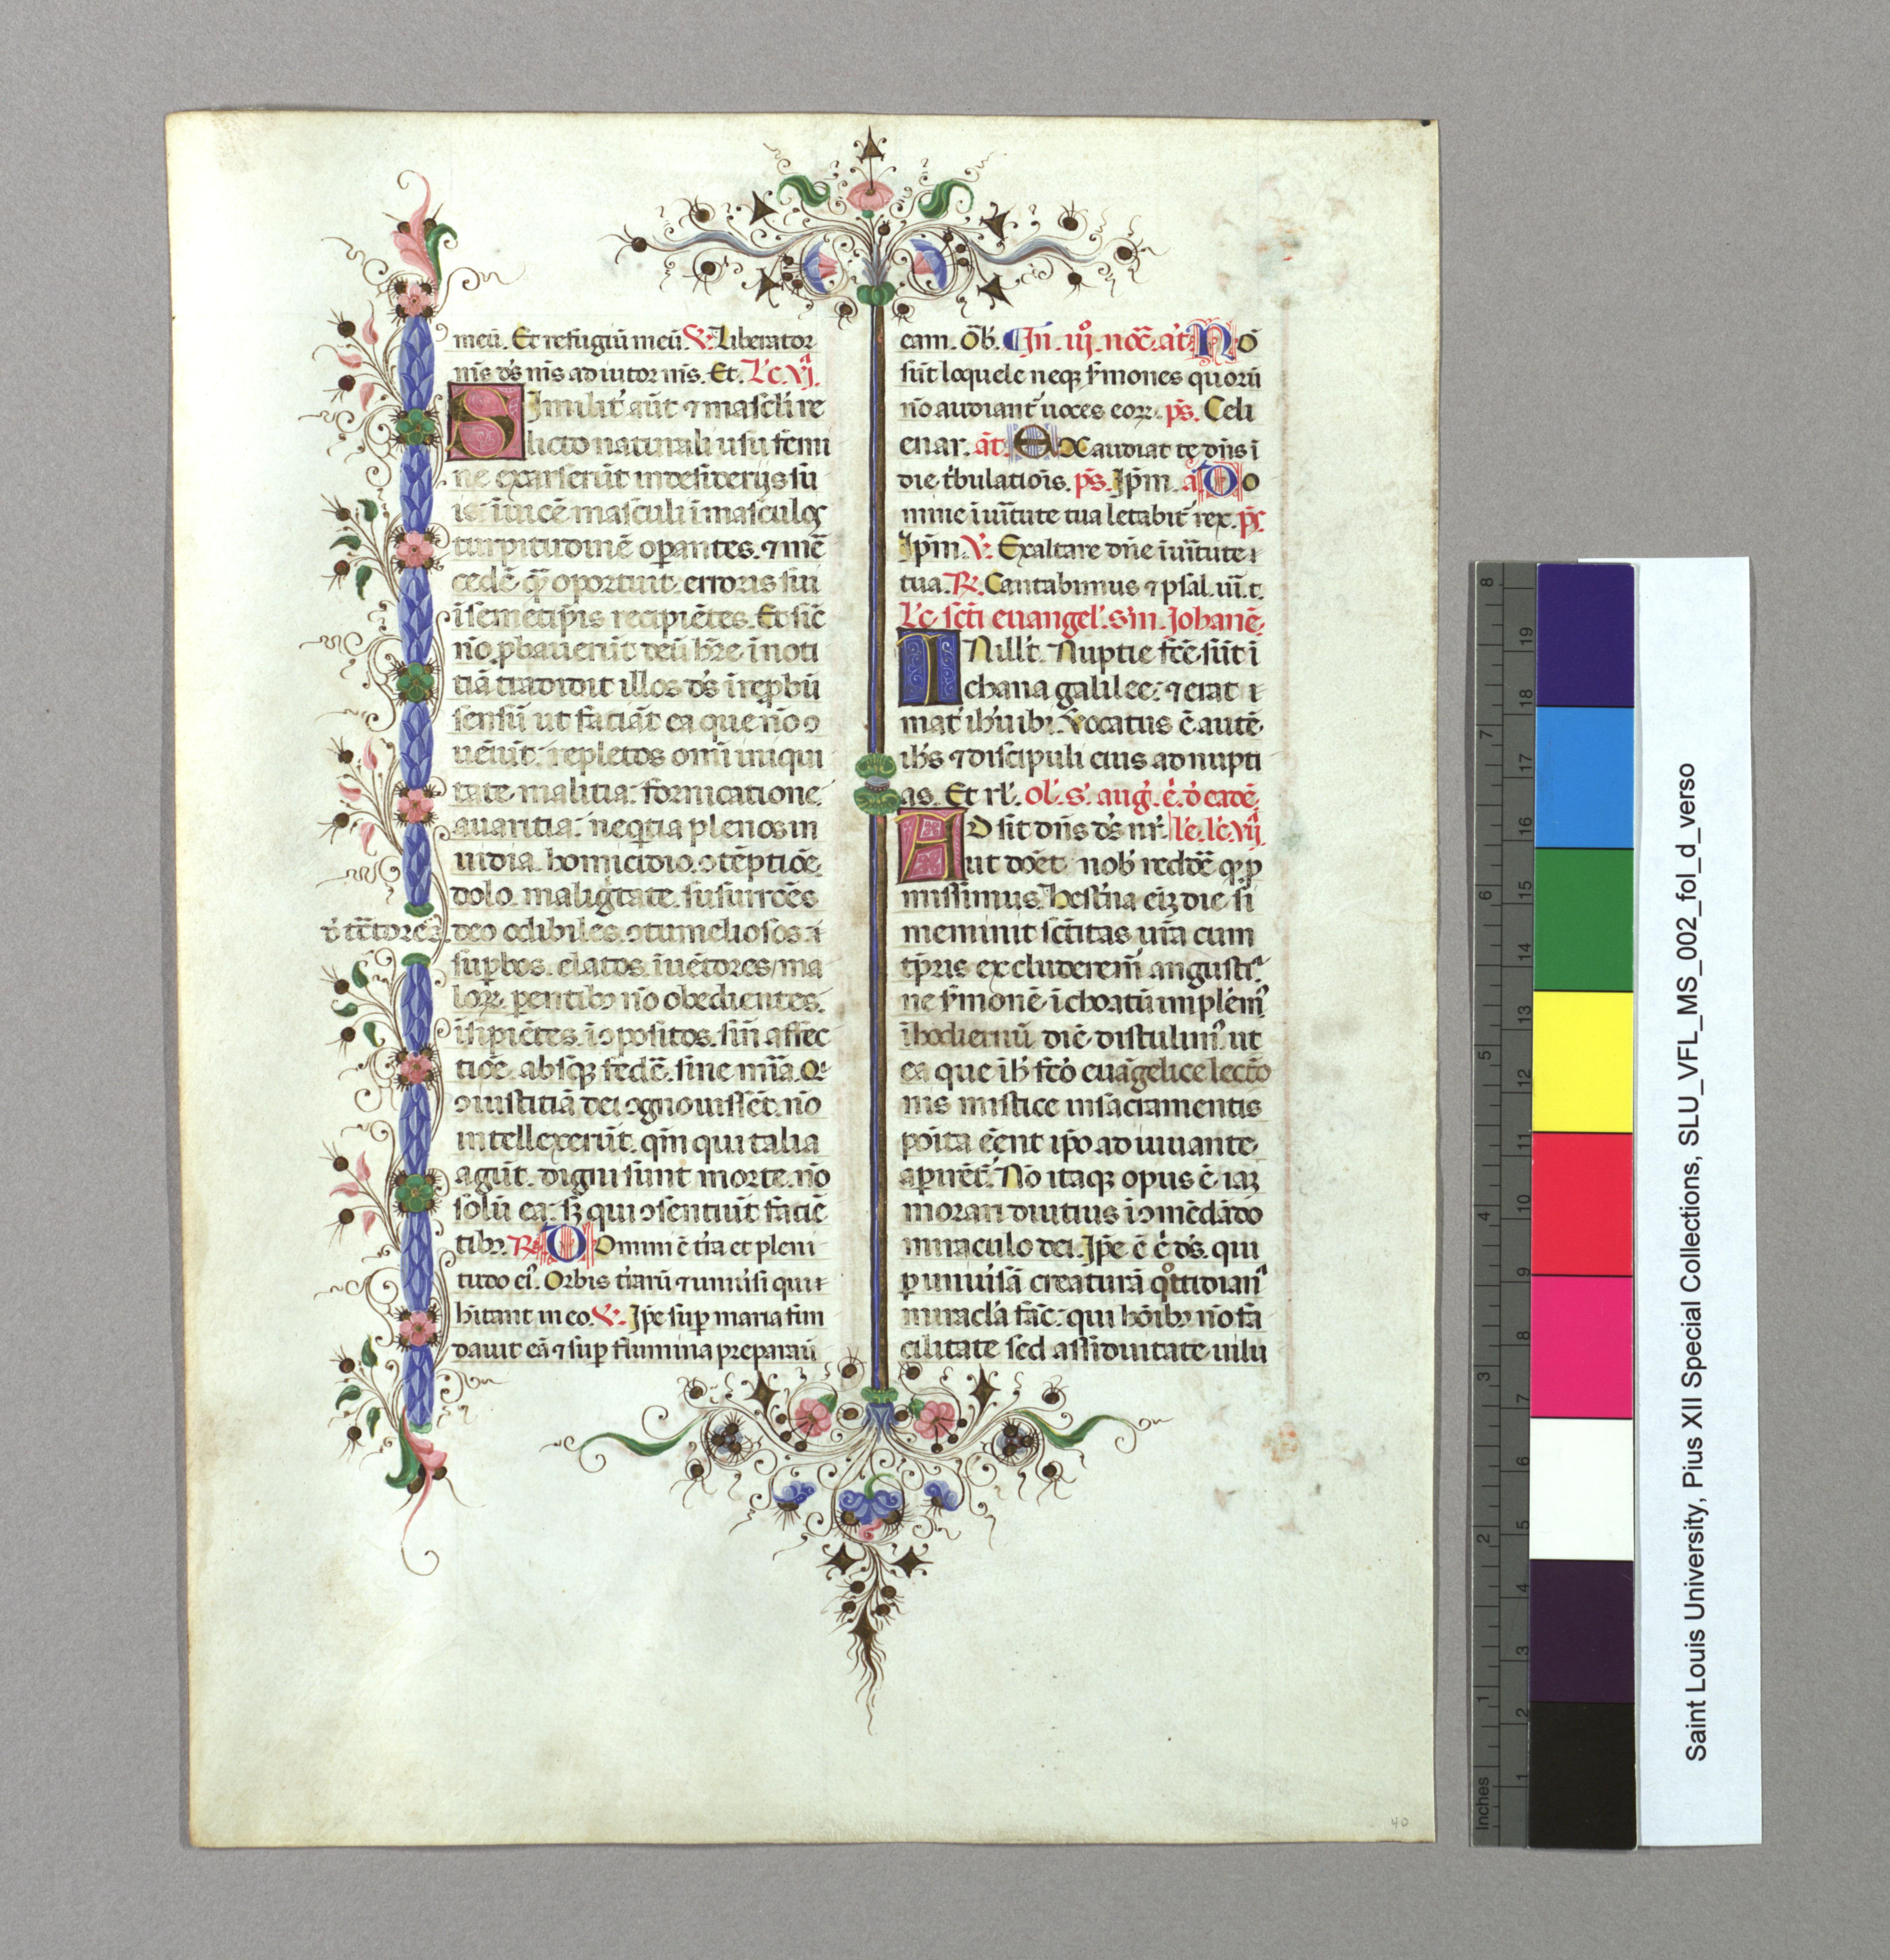 meū. Et refugiū meū. V. Liberator
m̄s ds̄ m̄s adiutor m̄s. Et. Lc̄. vj.
Similit' aūt ⁊ mascl'i re
licto naturali usu femi
ne exarserūt in desiderijs su
is iuicē masculi ī masculos
turpitudinē opantes. ⁊ m̄cē
cedē q̄ oportuit erroris sui
ī semetip̄is recipiētes. Et sic̄
nō pbauerūt deū hr̄e ī noti
tiā tradidit illos ds̄ ī repbū
sensū ut faciāt ea que nō ↄ
ueniūt. repletos omī iniqui
tate. malitia. fornicatione
auaritia. neqtia plenos in
uidia. homicidio. ↄtēptiōe.
dolo. malig̅tate. susurrōes
d̓t̄ctores. deo odibiles. ↄtumeliosos.
supbos. elatos. īuētores ma
loꝝ. parentibꝫ nō obedientes.
īsipiētes. īↄpositos. sin̄ affec
tiōe. absqꝫ fedē. sine mīa. Qi
ↄ iustitiā dei ↄgnouissēt. nō
intellexerūt. qm̄ qui talia
agūt. digni sunt morte. nō
solū ea: sꝫ qui ↄsentiūt faciē
tibꝫ. R. Domini ē tr̄a et pleni
tudo ei'. Orbis tr̄arū ⁊ uniu'si qui
hītant in eo. V. Ip̄e sup maria fun
dauit eā ⁊ sup flumina preparaū
eam. Ōb'. In. iij. noc̄. at̄. Nō
sūt loquele neqꝫ s'mones quorū
nō audiant' uoces eoꝝ. ps̄. Celi
enar. at̄. Exaudiat te dn̄s ī
die t'bulatiōis. ps̄. Ip̄m. a. Do
mine ī uīt̄ute tua letabit' rex. ps̄
Ip̄m. V. Exaltare dn̄e ī uīt̄ute
tua. R. Cantabimus ⁊ psal. uīt.
Lc̄. sc̄ti euangel'. s'm. Johanē.
IN ill'. t. Nuptie fc̄e sūt ī
chana galilee: ⁊ erat
mat' ih'u ibi. Vocatus ē autē
ih's ⁊ discipuli eius ad nupti
as. Et rl'. Ol'. s'. aug'. ē. d' eadē.
Adsit dn̄s ds̄ nr̄. Lc̄. vij
ut doēt nob' reddē q̄ p
misimus. Hest'na eiꝫ die si
meminit sc̄titas ur̄a cum
tp̄ris excluderem' angusti'
ne s'monē īchoatū implēm'
ī hodiernū diē distulim'. ut
ea que ib' fc̄o euāgelice lectō
nis mistice in sacramentis
pōita ēent ip̄o adiuuante
apirēt'. Nō itaqꝫ opus ē iaꝫ
morari diutius īↄmēdādo
miraculo dei. Ip̄e ē ē ds̄. qui
p uniu'sā creaturā qͦttidian'
miracl'a fac̄: qui hōibꝫ nō fa
cilitate sed assiduitate uilu
40
Saint Louis University, Pius XII Special Collections, SLU_VFL_MS_002_fol_d_verso
Inches 1 2 3 4 5 6 7 8
1 2 3 4 5 6 7 8 9 10 11 12 13 14 15 16 17 18 19